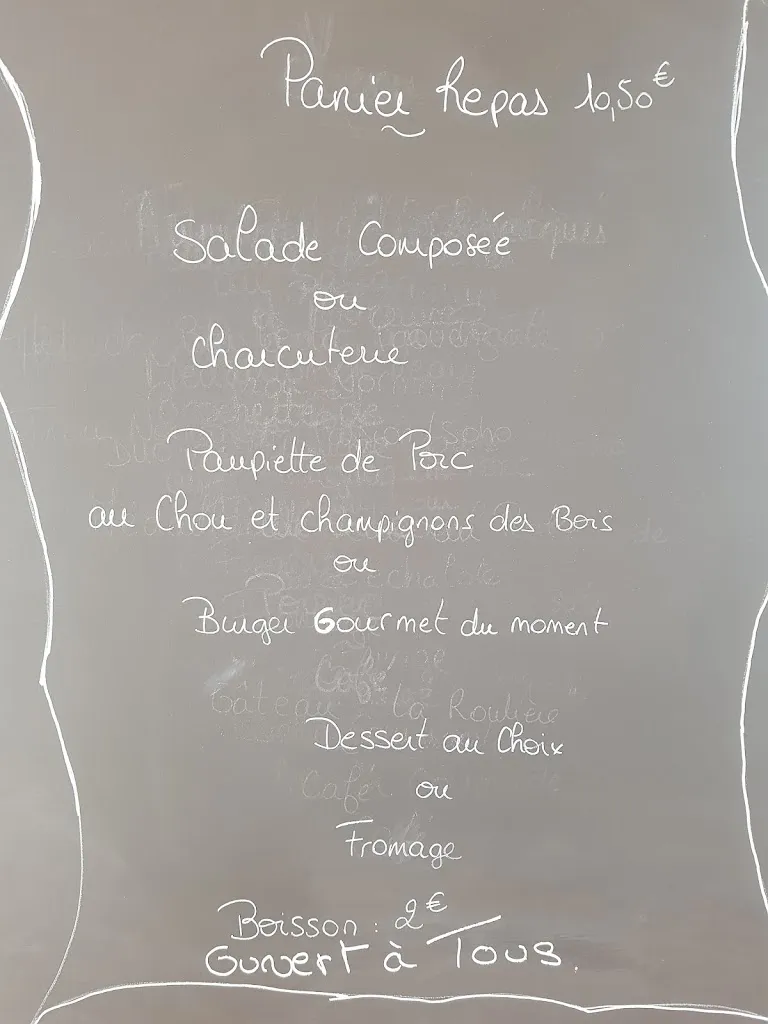 Panier Repas 10,50€
Salade Composée
ou
Charcuterie
Paupiette de Porc
au Chou et champignons des Bois
ou
Burger Gourmet du moment
Café
Gâteau "La Roulière"
Dessert au Choix
Café ou
Fromage
Boisson : 2€
Ouvert à Tous.